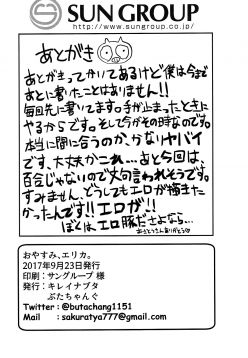 SUN GROUP
http://www.sungroup.co.jp/
あとがき
あとがきってかいてあるけど僕は今まで
あとに書いたことはありません!!
毎回先に書いてます。手が止まったときに
やるからです。そして今がその時なのです。
本当に間に合うのか、かなりヤバイ
です、大丈夫かこれ…あと今回は、
百合じゃないので文句言われそうです。
すみません、どうしてもエロが描きた
かったんです!!エロが!!
ぼくは、エロ豚だせよなら…
おやすみ、エリカ。
2017年9月23日発行
印刷:サングループ 様
発行:キレイナブタ
ぶたちゃんぐ
Twitter:@butachang1151
Mail :sakuratya777@gmail.com